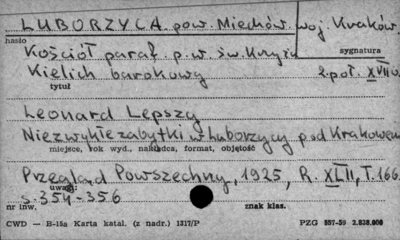 LUBORZYCA pow. Miechów. woj. Kraków.
hasło
Kościół paraf. p.w. św. Krzyża
sygnatura
Kielich barokowy 2. poł. XVII w.
tytuł
Leonard Lepszy
Niezwykłe zabytki w Luborzycy pod Krakowem
miejsce, rok wyd., nakładca, format, objętość
Przegląd Powszechny, 1925, R. XLII, T. 166
uwagi:
s. 354-356
nr inw. znak klas.
CWD — B-15a Karta katal. (z nadr.) 1317/P PZG 557-59 2.828.000